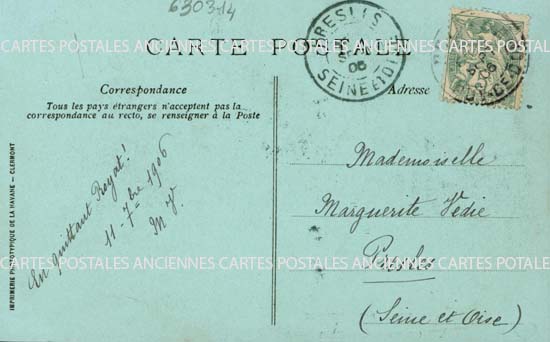 6303-14
CARTE POSTALE
Correspondance
Tous les pays étrangers n'acceptent pas la
correspondance au recto, se renseigner à la Poste
Adresse
En quittant Royat!
11-7bre 1906
M V.
Mademoiselle
Marguerite Védie
Presles
(Seine et Oise)
IMPRIMERIE PHOTOTYPIQUE DE LA HAVANE - CLERMONT
PRESLES
SEINE ET OISE
CARTES POSTALES ANCIENNES CARTES POSTALES ANCIENNES
CARTES POSTALES ANCIENNES CARTES POSTALES ANCIENNES